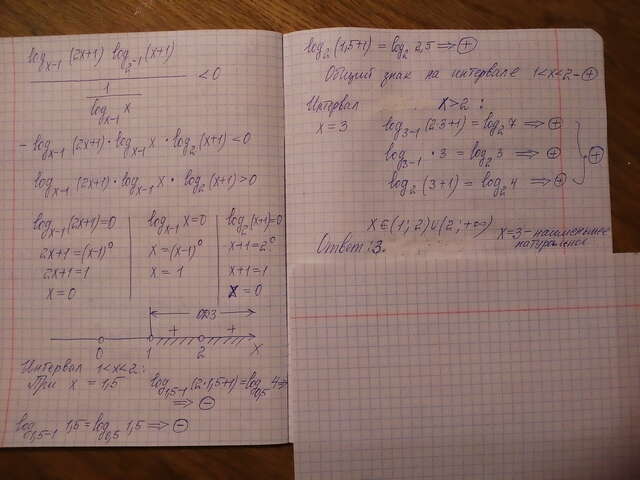 log_{x-1}(2x+1) log_{2^{-1}}(x+1)
1
log_{x-1} x
< 0
- log_{x-1}(2x+1) · log_{x-1} x · log_2(x+1) < 0
log_{x-1}(2x+1) · log_{x-1} x · log_2(x+1) > 0
log_{x-1}(2x+1)=0
2x+1=(x-1)^0
2x+1=1
x=0
log_{x-1} x=0
x=(x-1)^0
x=1
log_2(x+1)=0
x+1=2^0
x+1=1
x=0
ОДЗ
+ +
0 1 2 x
Интервал 1<x<2:
При x = 1,5 log_{1,5-1}(2·1,5+1)=log_{0,5} 4 ⇒
⇒ ⊖
log_{1,5-1} 1,5=log_{0,5} 1,5 ⇒ ⊖
log_2(1,5+1)=log_2 2,5 ⇒ ⊕
Общий знак на интервале 1<x<2 - ⊕
Интервал x>2:
x=3 log_{3-1}(2·3+1)=log_2 7 ⇒ ⊕
log_{3-1}·3=log_2 3 ⇒ ⊕
⊕
log_2(3+1)=log_2 4 ⇒ ⊕
x∈(1; 2)∪(2; +∞)
x=3-наименьшее
натуральное
Ответ: 3.